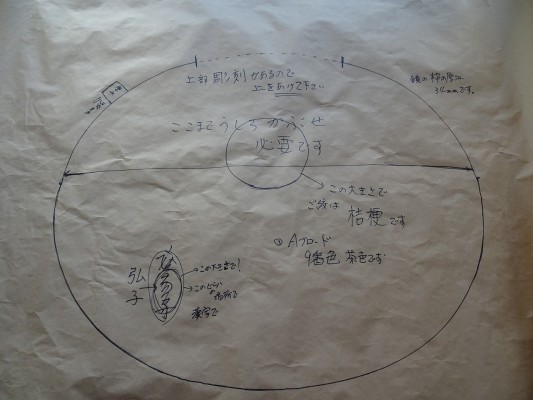 上部彫刻があるので
上をあけて下さい
鏡の枠の厚みは
34mmです。
ここまでうしろかぶせ
必要です
この大きさで
ご紋は 桔梗です
Aブロード
9番色 茶色です
弘子
この下さまで!
このくらいの
場所で
漢字で